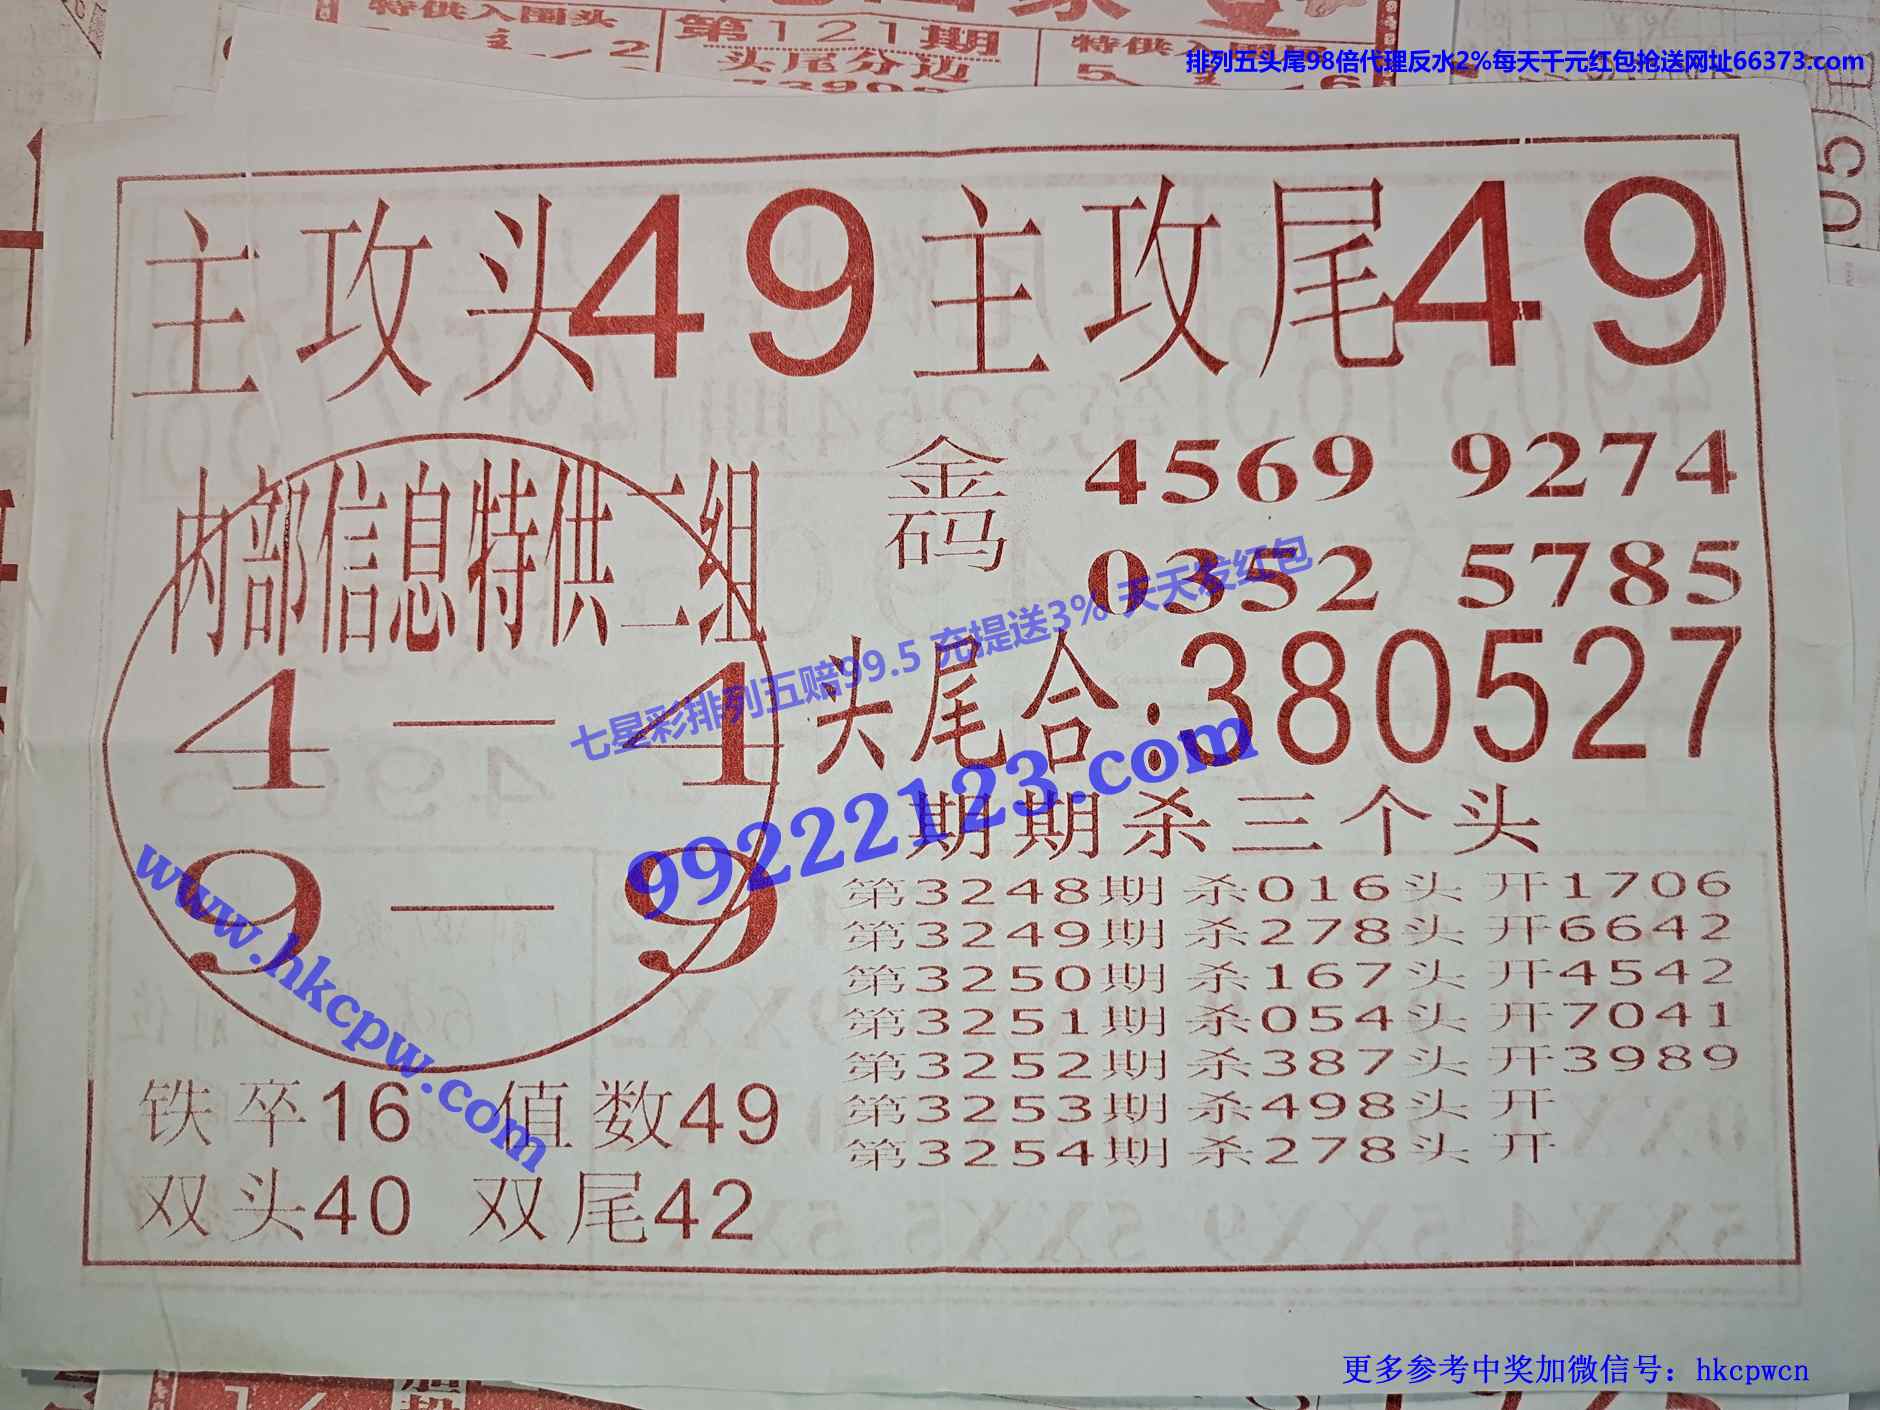 特供入围头
第121期
头尾分边
排列五头尾98倍代理反水2%每天千元红包抢送网址66373.com
主攻头49 主攻尾49
内部信息特供二组
4—4
9—9
金码
4569 9274
0352 5785
七星彩排列五赔99.5 充提送3% 天天发红包
头尾合:380527
99222123.com
www.hkcpw.com
期期杀三个头
第3248期 杀016头 开1706
第3249期 杀278头 开6642
第3250期 杀167头 开4542
第3251期 杀054头 开7041
第3252期 杀387头 开3989
第3253期 杀498头 开
第3254期 杀278头 开
铁卒16 值数49
双头40 双尾42
更多参考中奖加微信号：hkcpwcn